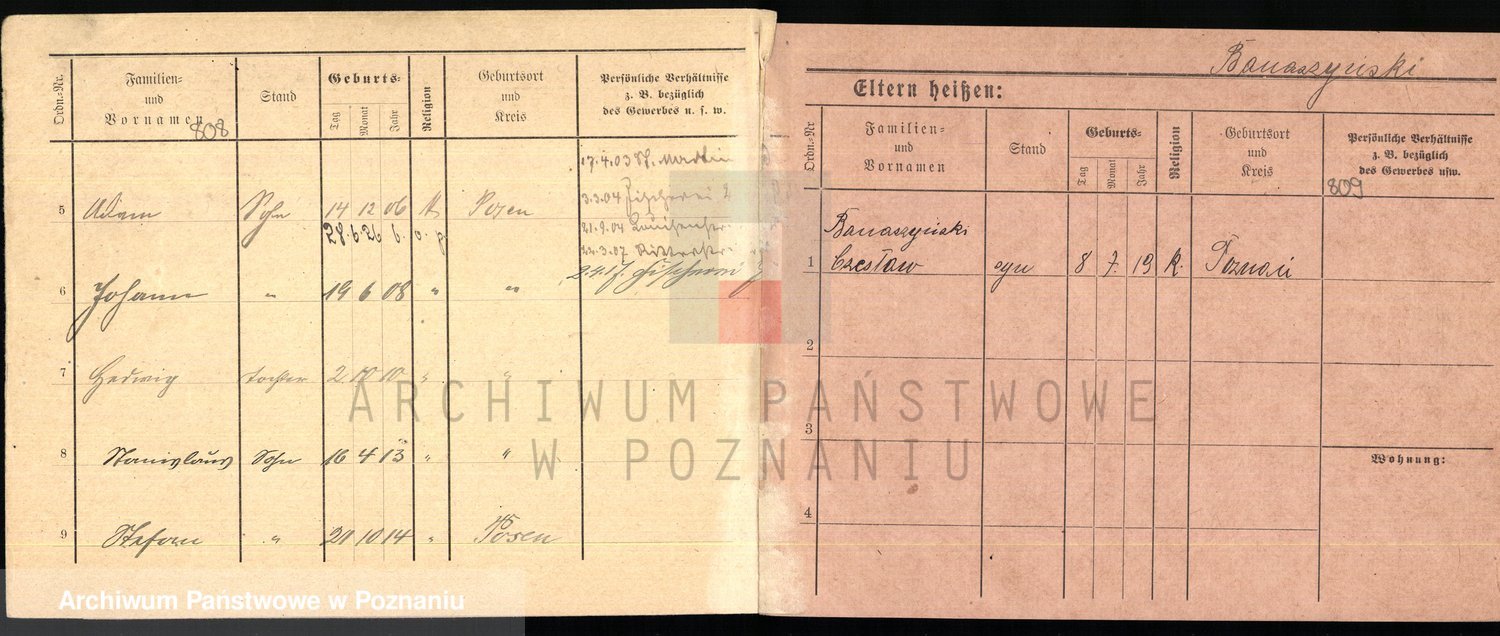 Ordn.-Nr.
Familien-
und
Vornamen
808
Stand
Geburts-
Tag
Monat
Jahr
Religion
Geburtsort
und
Kreis
Persönliche Verhältnisse
z. B. bezüglich
des Gewerbes u. s. w.
17.4.03 St. Martin
3.3.04 Fischerei
5 Adam Sohn 14 12 06 k Posen
28.6.26
21.9.04
22.3.07 Ritterstr
6 Johann " 19 6 08 " "
Fischerei
7 Hedwig Tochter 2 10 10 " "
8 Stanislaus Sohn 16 4 13 " "
9 Stefan " 21 10 14 " Posen
Banaszyński
Eltern heißen:
Ordn.-Nr
Familien-
und
Vornamen
Stand
Geburts-
Tag
Monat
Jahr
Religion
Geburtsort
und
Kreis
Persönliche Verhältnisse
z. B. bezüglich
des Gewerbes usw.
809
Banaszyński
1 Czesław syn 8 7. 19 k. Poznań
2
3
Wohnung:
4
ARCHIWUM PAŃSTWOWE
W POZNANIU
Archiwum Państwowe w Poznaniu